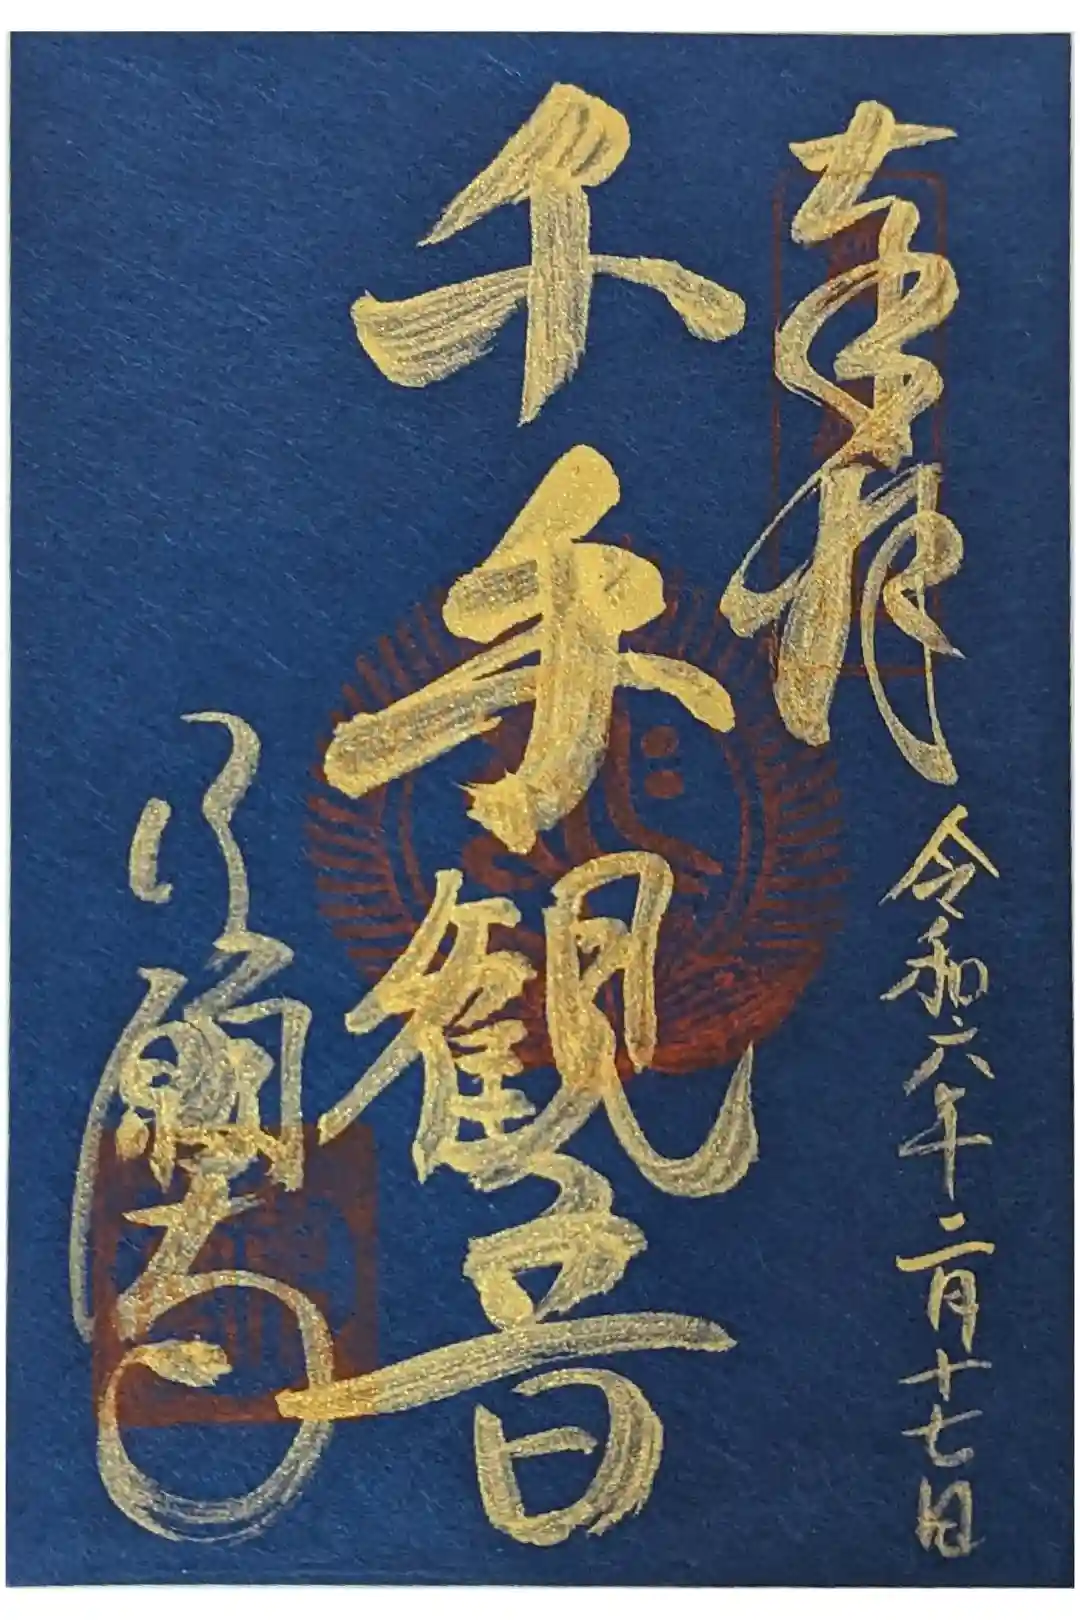 奉拝
令和六年二月十七日
千手観音
行願寺